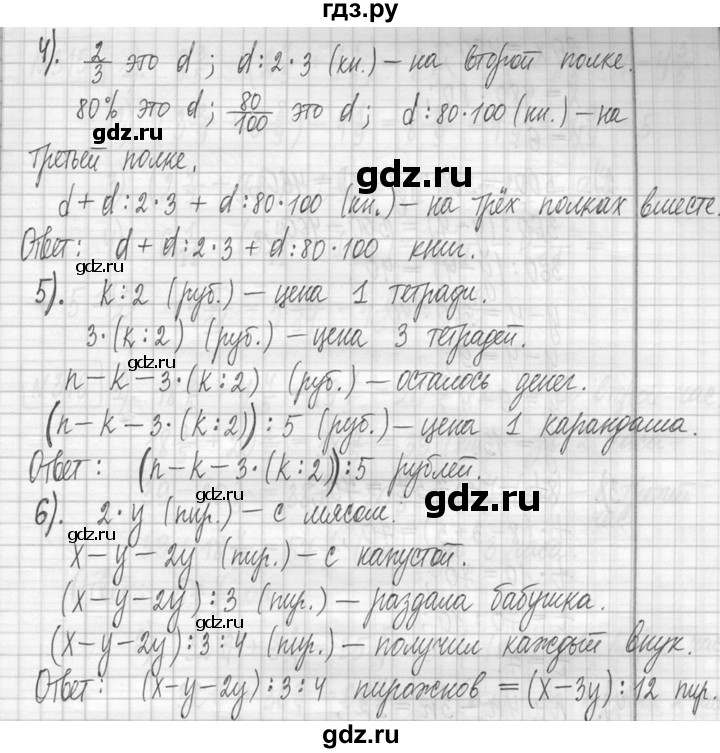 гдз.ру
4). 2/3 это d ; d:2·3 (кн.) – на второй полке.
80% это d ; 80/100 это d ; d:80·100 (кн.) – на
третьей полке.
d + d:2·3 + d:80·100 (кн.) – на трёх полках вместе.
Ответ: d + d:2·3 + d:80·100 книг.
5). k:2 (руб.) – цена 1 тетради.
3·(k:2) (руб.) – цена 3 тетрадей.
n – k – 3·(k:2) (руб.) – осталось денег.
(n – k – 3·(k:2)):5 (руб.) – цена 1 карандаша.
Ответ: (n – k – 3·(k:2)):5 рублей.
6). 2·y (пир.) – с мясом.
x – y – 2y (пир.) – с капустой.
(x – y – 2y):3 (пир.) – раздала бабушка.
(x – y – 2y):3:4 (пир.) – получил каждый внук.
Ответ: (x – y – 2y):3:4 пирожков = (x – 3y):12 пир.
gdz.ru
gdz.ru
gdz.ru
gdz.ru
gdz.ru
gdz.ru
gdz.ru
gdz.ru
gdz.ru
gdz.ru
gdz.ru